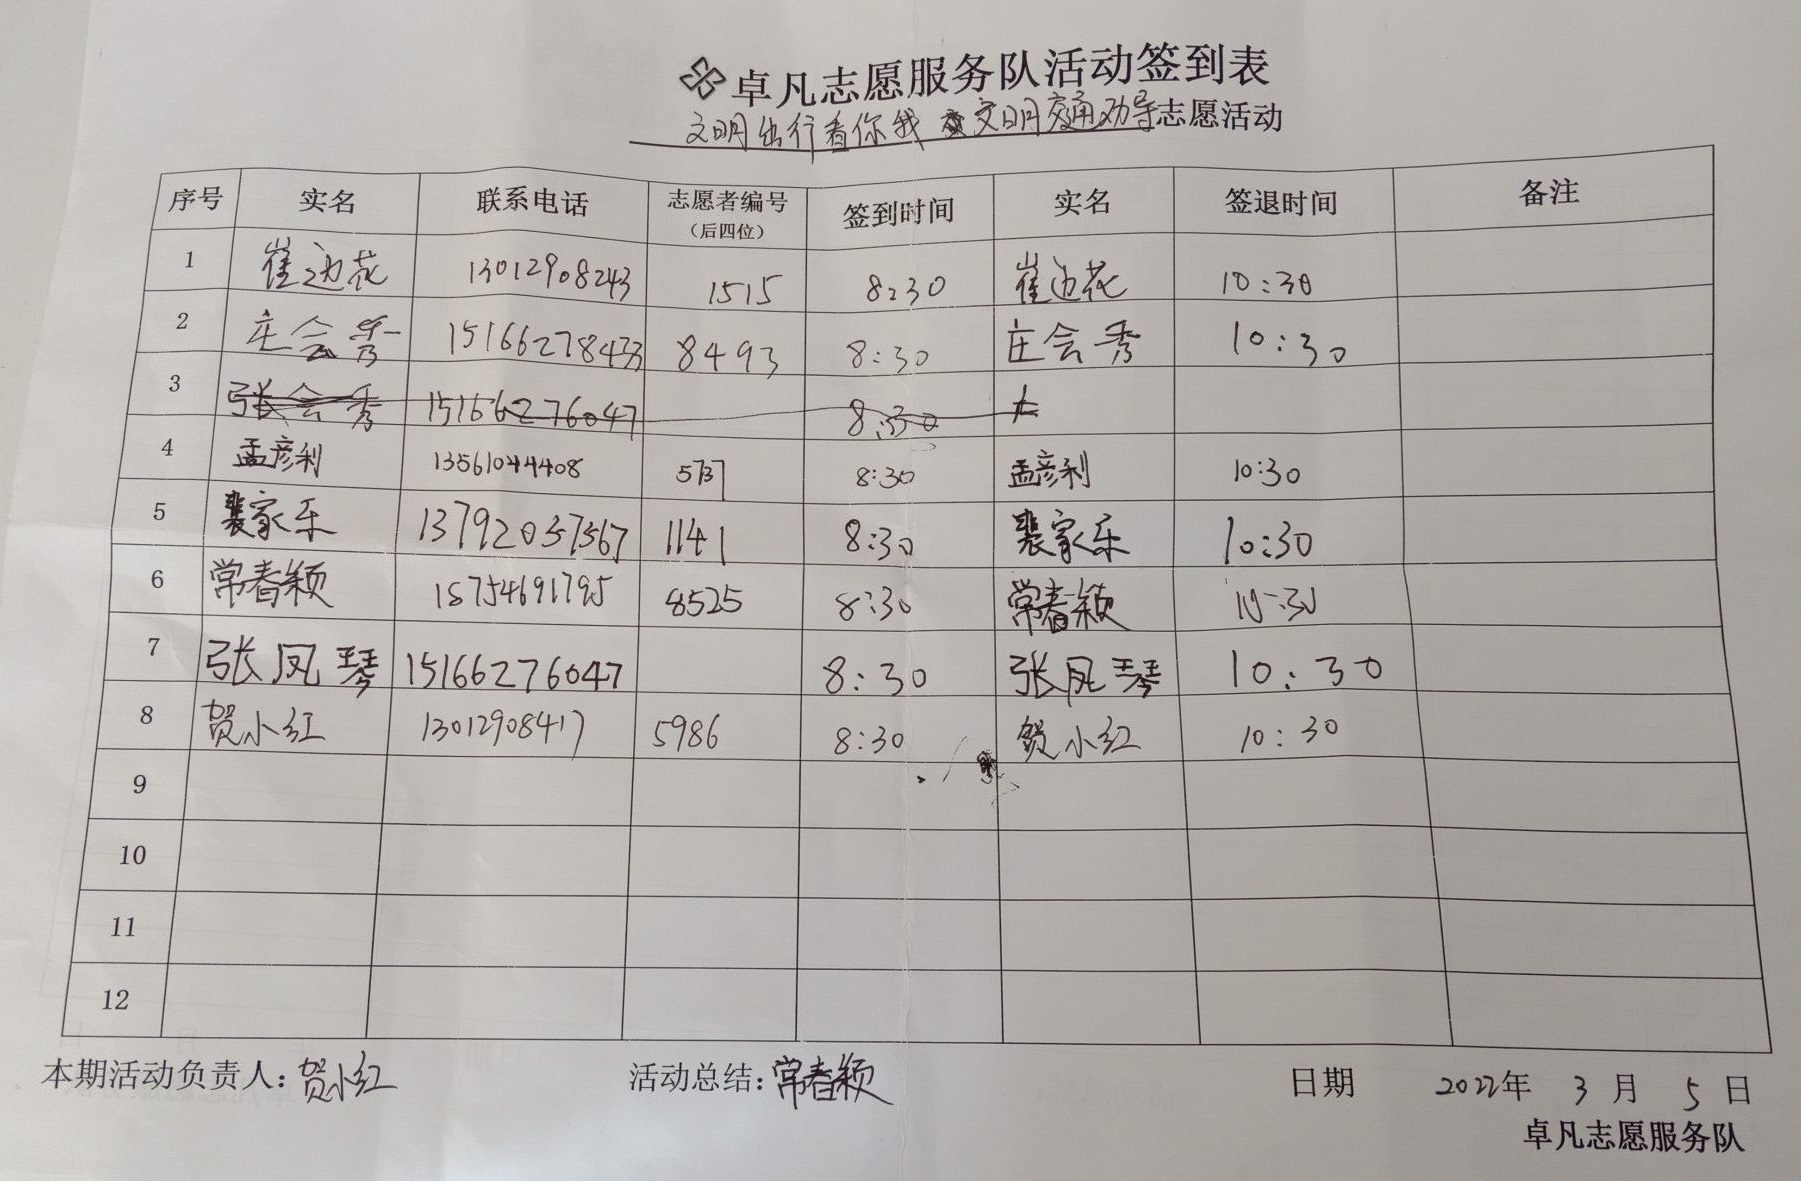 卓凡志愿服务队活动签到表
文明出行看你我 文明交通劝导志愿活动
序号 实名 联系电话 志愿者编号（后四位） 签到时间 实名 签退时间 备注
1 崔边花 13012908243 1515 8:30 崔边花 10:30
2 庄会秀 8493 8:30 庄会秀 10:30
3 张会秀 15166276047 8:30
4 孟彦利 13561044408 5737 8:30 孟彦利 10:30
5 裴家乐 13792037567 1141 8:30 裴家乐 10:30
6 常春颖 18754691795 8525 8:30 常春颖 10:30
7 张凤琴 15166276047 8:30 张凤琴 10:30
8 贺小红 13012908417 5986 8:30 贺小红 10:30
9
10
11
12
本期活动负责人：贺小红 活动总结：常春颖 日期 2022年 3月 5日
卓凡志愿服务队